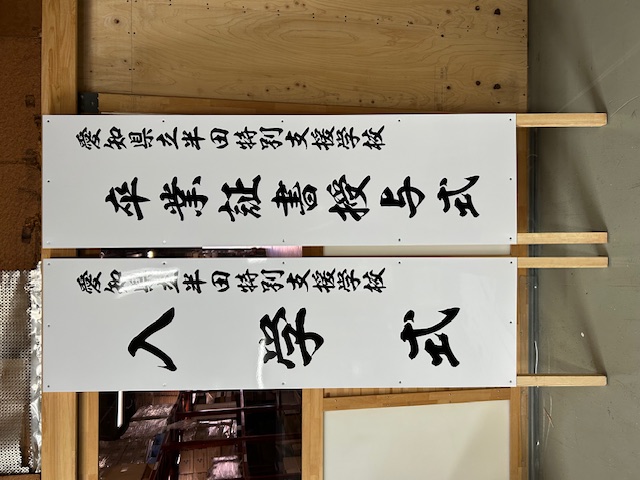 愛知県立半田特別支援学校
卒業証書授与式
愛知県立半田特別支援学校
入学式